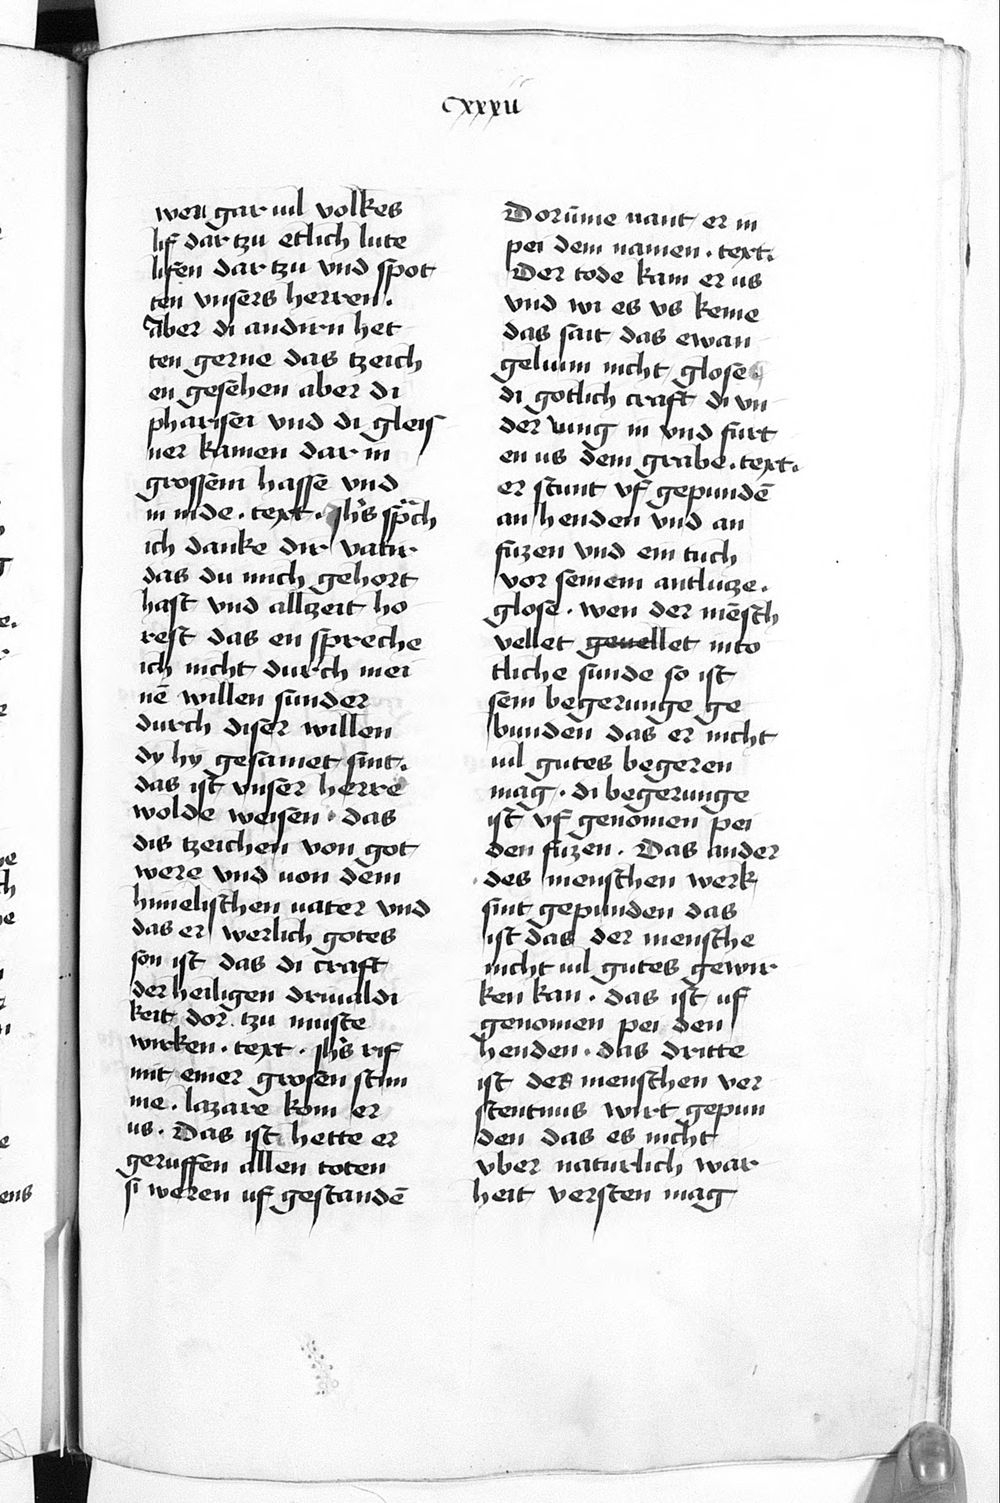 cxxxii
wen gar uil volkes
lif dar tzu etlich lute
lifen dar tzu vnd spot
ten vnsers herren.
Aber di andirn het
ten gerne das tzeich
en gesehen aber di
pharisei vnd di gleis
ner kamen dar in
grossem hasse vnd
in nide. text. Jhs sprach
ich danke dir vatir
das du mich gehort
hast vnd allzeit ho
rest das en spreche
ich nicht durch mei
nē willen sunder
durch diser willen
dy hy gesamet sint.
das ist vnser herre
wolde weisen. das
dis tzeichen von got
were vnd uon dem
himelischen uater vnd
das er werlich gotes
son ist das di craft
der heiligen driualdi
keit dor tzu muste
wirken. text. Jhs rif
mit einer grosen stim
me. lazare kom er
us. Das ist hette er
geruffen allen toten
si weren uf gestandē
Dorūme nant er in
pei dem namen. text.
Der tode kam er us
vnd wi es vs keme
das sait das ewan
gelium nicht glose.
di gotlich craft di vn
der uing in vnd furt
en us dem grabe. text.
er stunt vf gepundē
an henden vnd an
fuzen vnd ein tuch
vor seinem antlucze.
glose. wen der mēsch
vellet geuellet in to
tliche sunde so ist
sein begerunge ge
bunden das er nicht
uil gutes begeren
mag. di begerunge
ist vf genomen pei
den fuzen. Das ander
des menschen werk
sint gepunden das
ist das der mensche
nicht uil gutes gewir
ken kan. das ist uf
genomen pei den
henden. das dritte
ist des menschen ver
stentnus wirt gepun
den das es nicht
vber naturlich war
heit versten mag